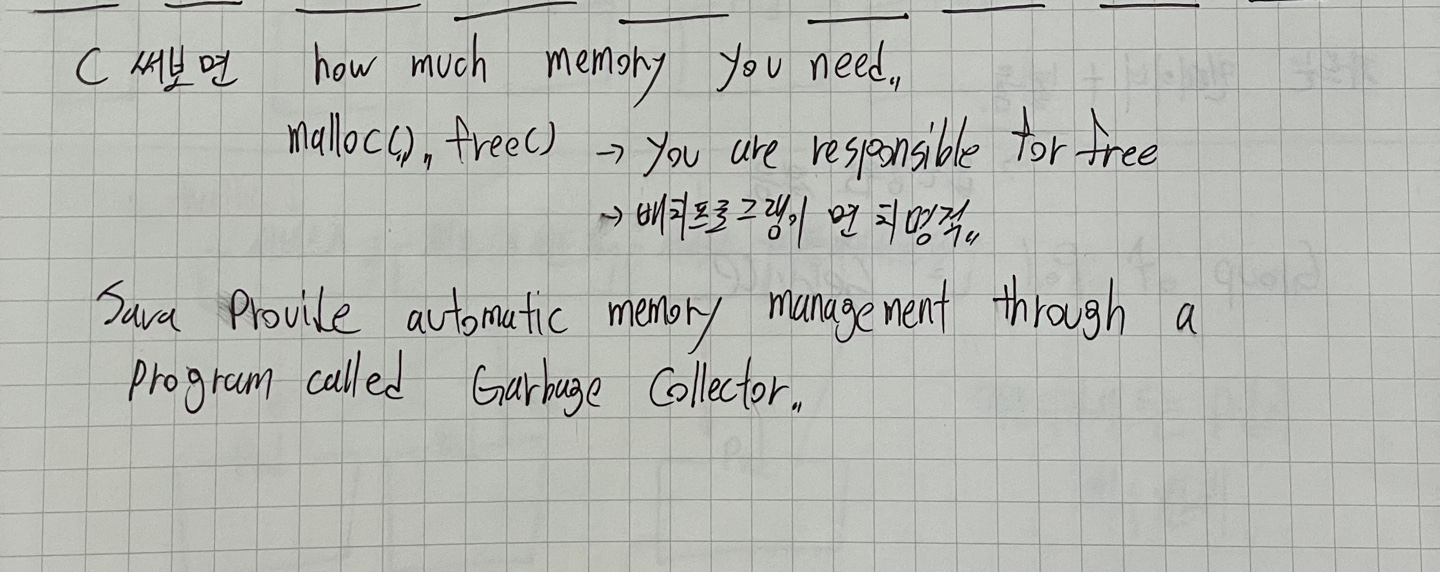 C 써보면 how much memory you need,,
malloc(), free() → you are responsible for free
→ 배치프로그램이면 치명적,,
Java Provide automatic memory management through a
program called Garbage Collector,,